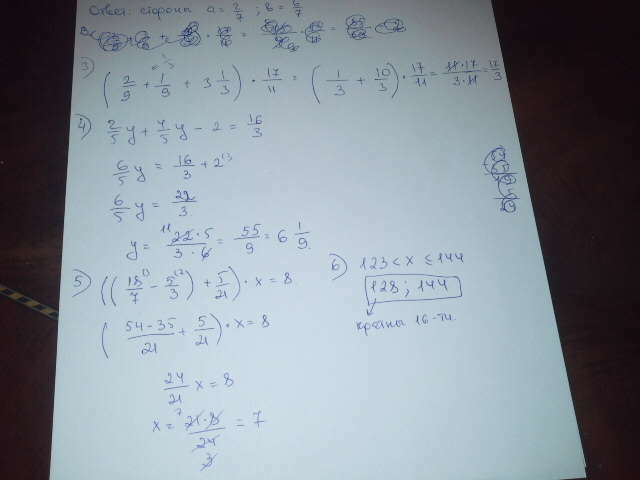 Ответ: стороны a = 2/7 ; b = 6/7
3) (2/9 + 1/9 + 3 1/3) · 17/11 = (1/3 + 10/3) · 17/11 = 11·17/3·11 = 17/3
4) 2/5 y + 4/5 y - 2 = 16/3
6/5 y = 16/3 + 2
6/5 y = 22/3
y = 22·5/3·6 = 55/9 = 6 1/9
5) ((18/7 - 5/3) + 5/21) · x = 8
(54-35/21 + 5/21) · x = 8
24/21 x = 8
x = 21·8/24 = 7
6) 123 < x ≤ 144
128 ; 144
кратны 16-ти.